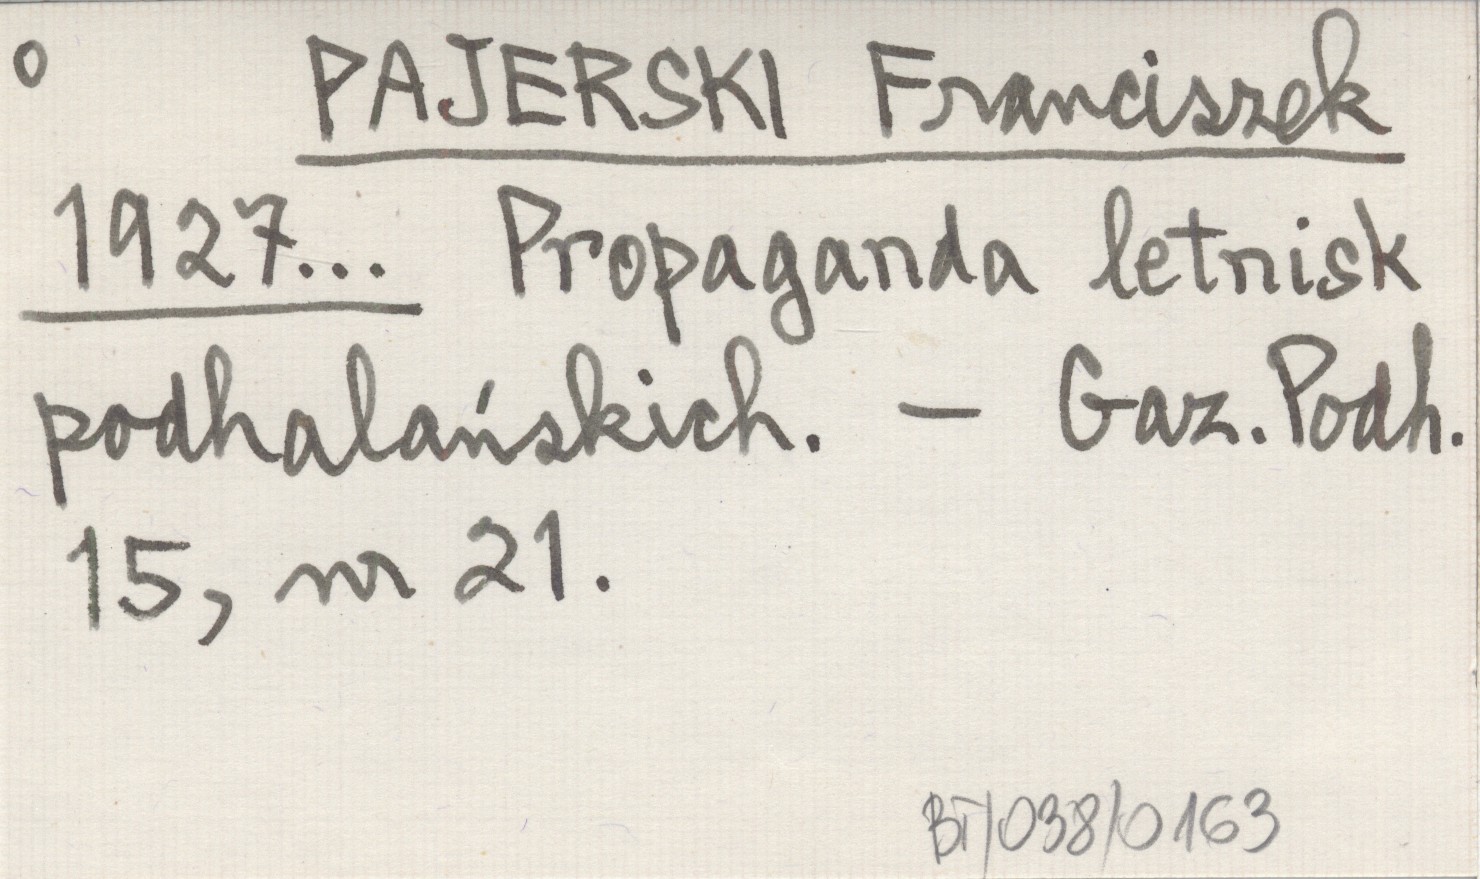 o PAJERSKI Franciszek
1927... Propaganda letnisk
podhalańskich. – Gaz. Podh.
15, nr 21.
BT/038/0163